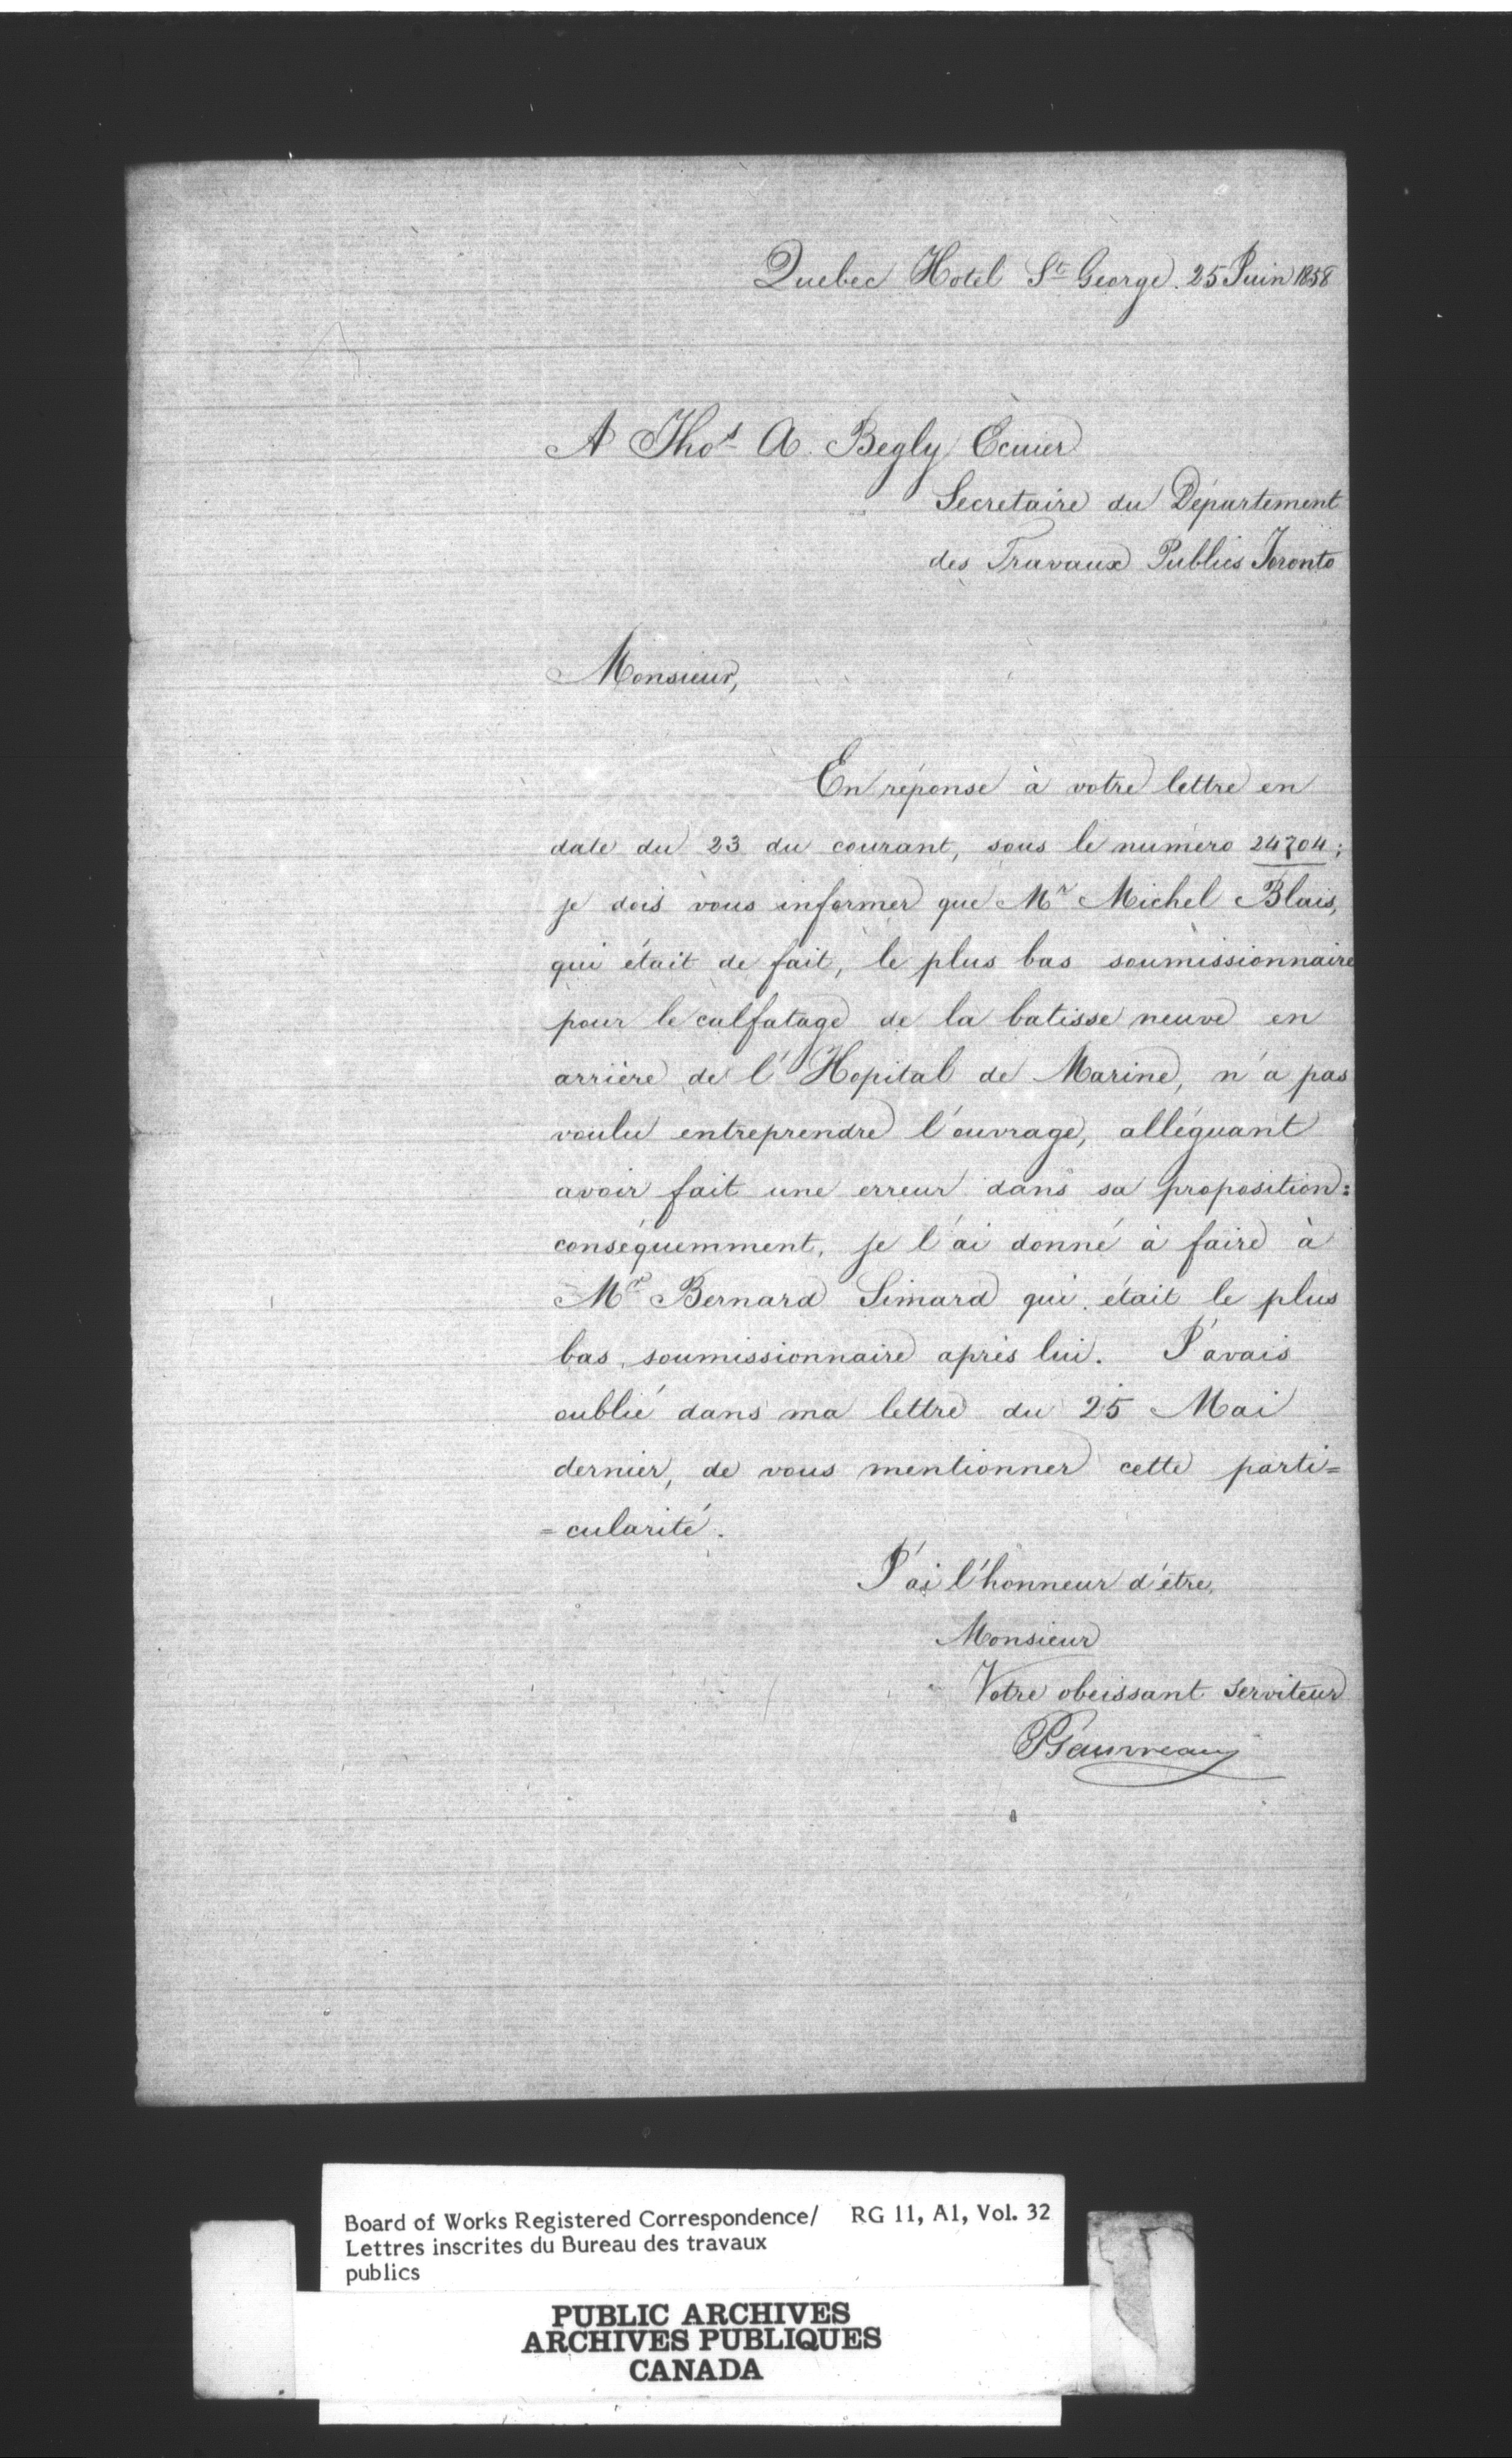 Quebec Hotel St George. 25 Juin 1858
A Thos A. Begly Ecuier
Secretaire du Département
des Travaux Publics Toronto
Monsieur,
En réponse à votre lettre en
date du 23 du courant, sous le numéro 24704;
je dois vous informer que Mr Michel Blais,
qui était de fait, le plus bas soumissionnaire
pour le calfatage de la batisse neuve en
arrière de l'Hopital de Marine, n'a pas
voulu entreprendre l'ouvrage, alléguant
avoir fait une erreur dans sa proposition:
conséquemment, je l'ai donné à faire à
Mr Bernard Simard qui était le plus
bas soumissionnaire après lui. J'avais
oublié dans ma lettre du 25 Mai
dernier, de vous mentionner cette parti=
=cularité.
J'ai l'honneur d'étre,
Monsieur
Votre obeissant serviteur
PGauvreau
Board of Works Registered Correspondence/ RG 11, A1, Vol. 32
Lettres inscrites du Bureau des travaux
publics
PUBLIC ARCHIVES
ARCHIVES PUBLIQUES
CANADA